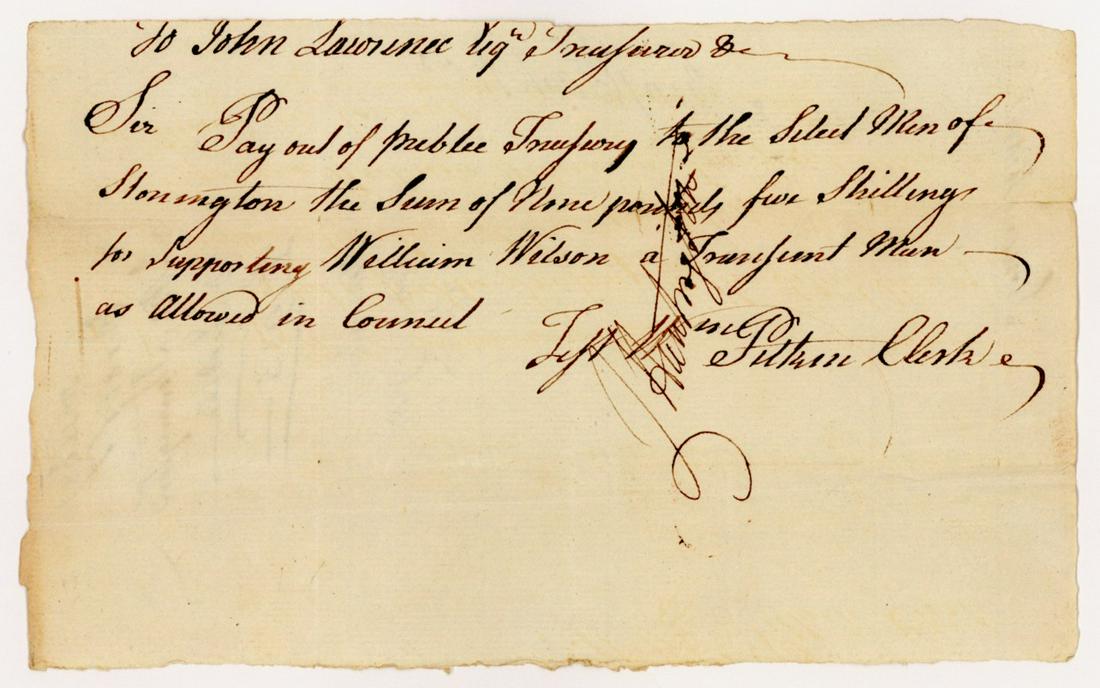 To John Lawrence Esqr Treasurer &c
Sir Pay out of publec Treasury to the Select Men of
Stonington the Sum of Nine pounds five Shillings
for Supporting William Wilson a Transient Man
as Allowed in Councel
Test Wm Pitkin Clerk